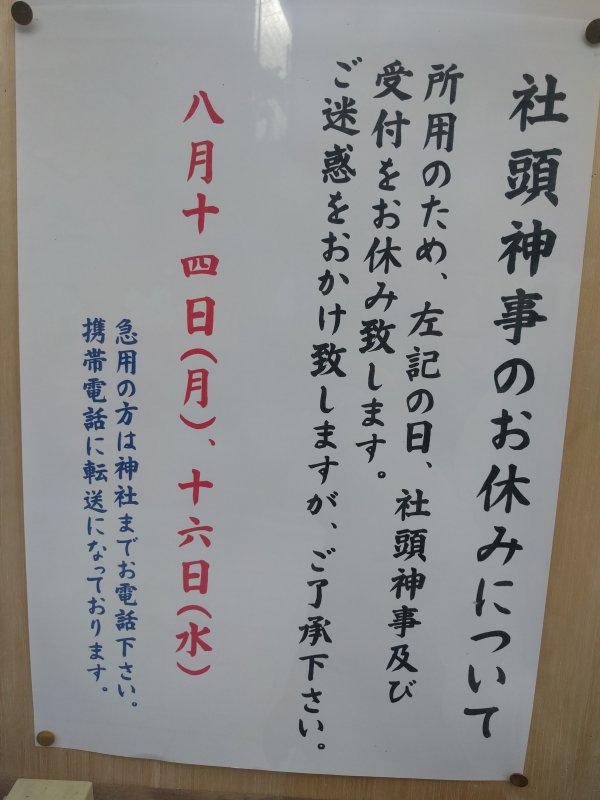 社頭神事のお休みについて
所用のため、左記の日、社頭神事及び
受付をお休み致します。
ご迷惑をおかけ致しますが、ご了承下さい。
八月十四日(月)、十六日(水)
急用の方は神社までお電話下さい。
携帯電話に転送になっております。